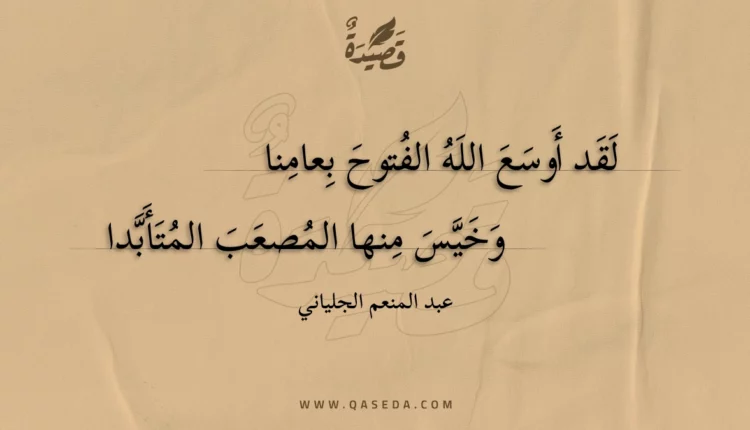 قَصِيْدَةٌ
لَقَد أَوسَعَ اللَهُ الفُتوحَ بِعامِنا
وَخَيَّسَ مِنها المُصعَبَ المُتَأَبَّدا
عبد المنعم الجلياني
WWW.QASEDA.COM